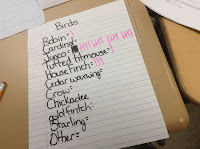 Birds
Robin-
Cardinal-
Junco-
Tufted titmouse-
House finch-
Cedar waxwing-
Crow-
Chickadee
goldfinch-
Starling-
Other-